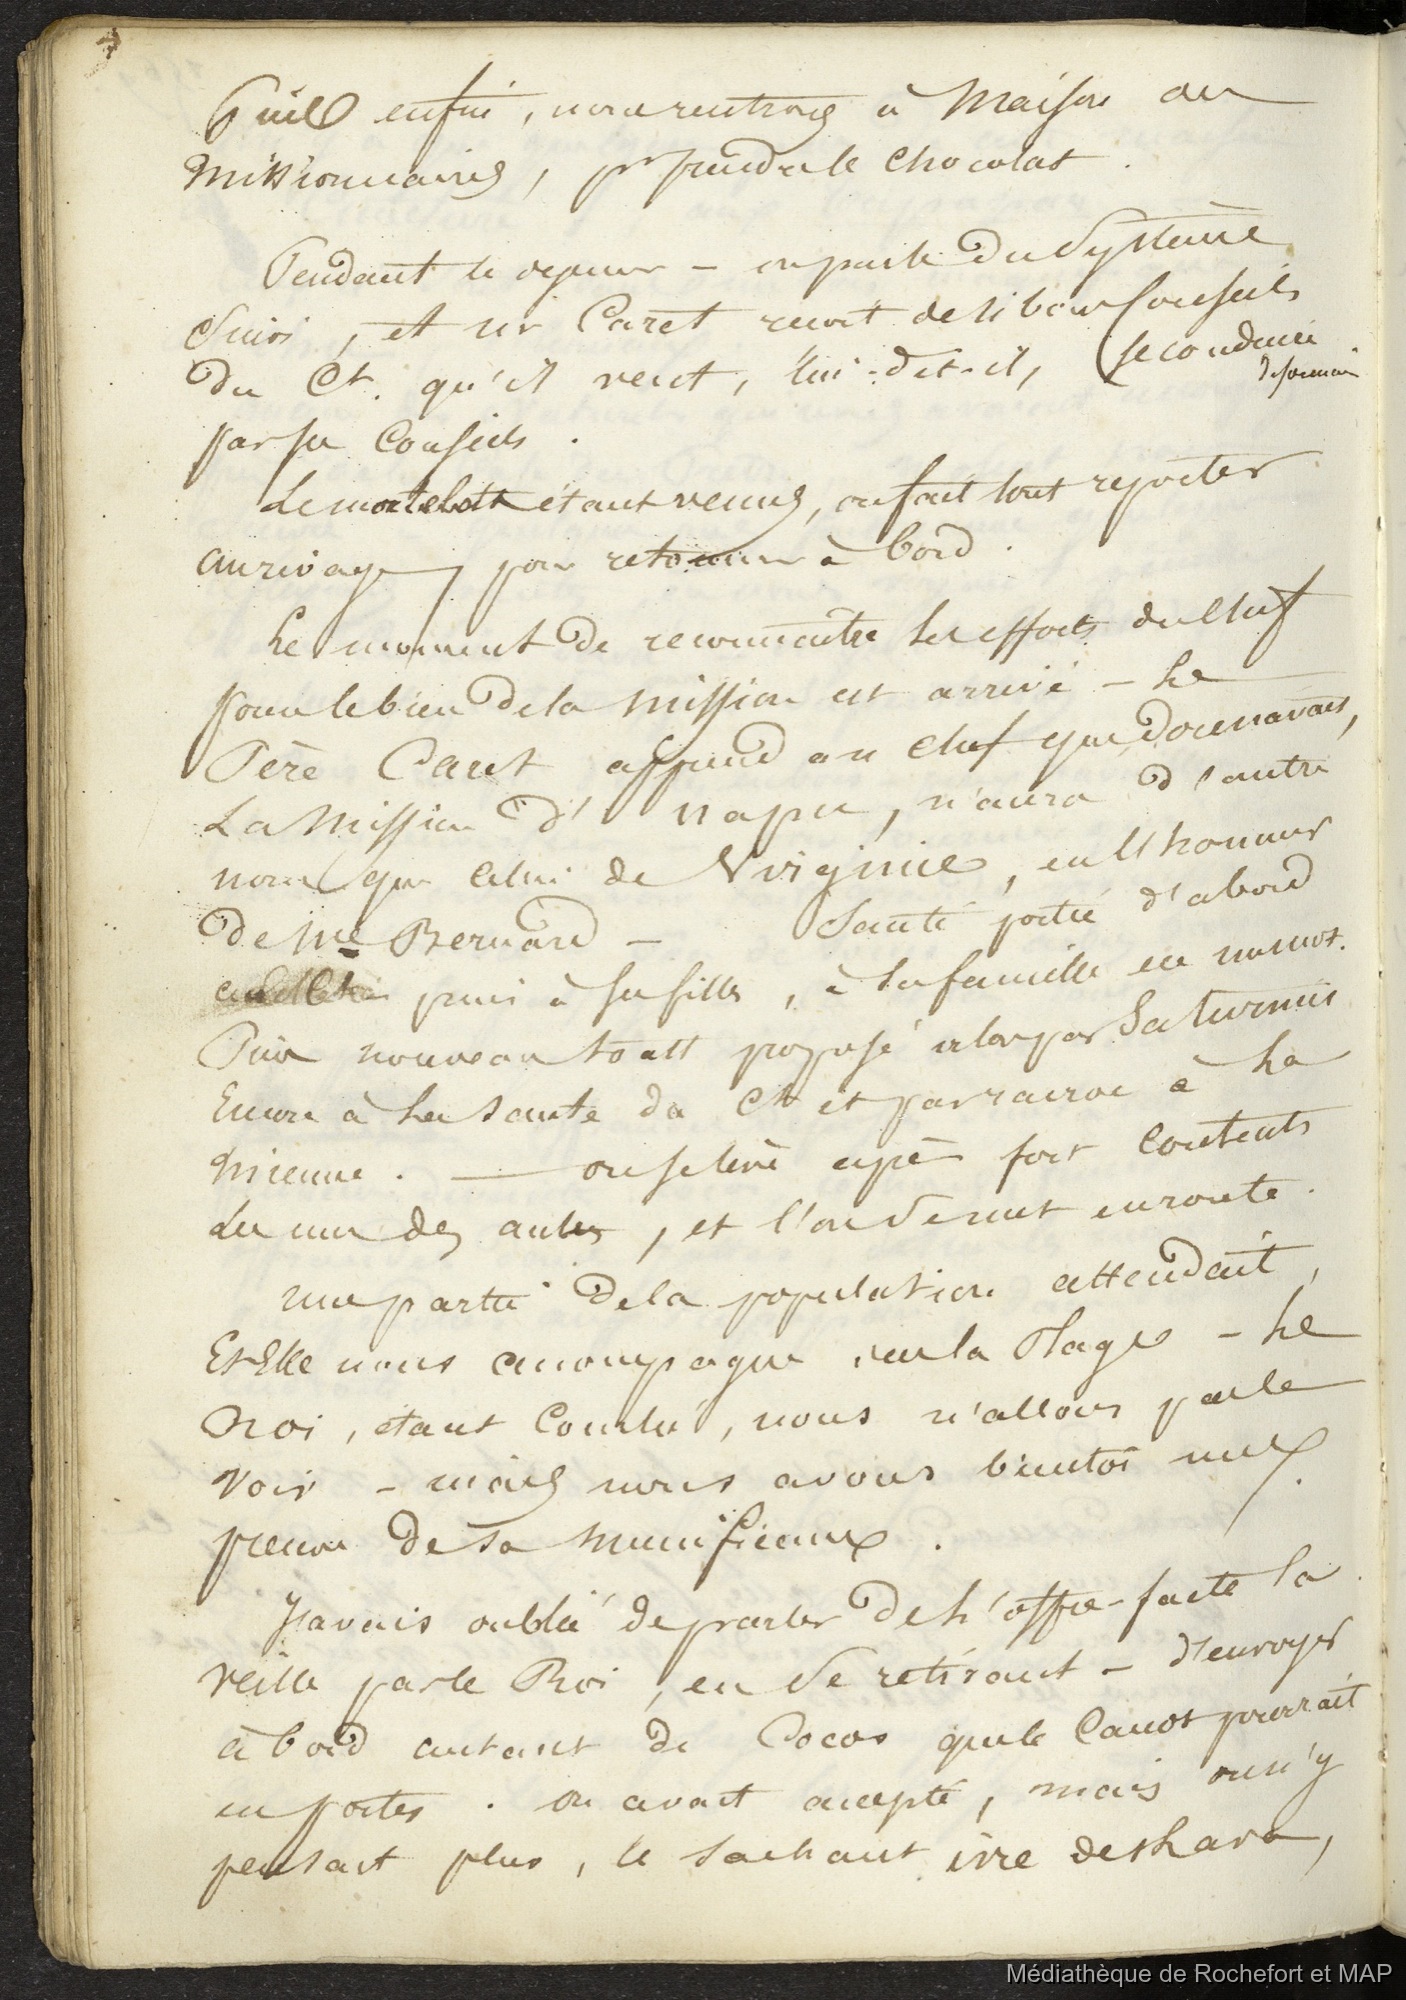 enfin, nous rentrons à Maison des
Missionnaires, pr prendre le chocolat.
Pendant le séjour – on parle du Systême
Suivi, et Mr Caret reçoit de si bons Conseils
du Ct. qu'il veut, lui-dit-il, se conduire
désormais
par ses Conseils.
Les matelots étant venus, on fait tout reporter
au rivage, pour retourner à bord.
Le moment de reconnaître les efforts du chef
pour le bien de la Mission est arrivé – Le
Père Caret apprend au chef que dorénavant,
La Mission d' napu, n'aura d'autre
nom que celui de Virginie, en l'honneur
de Me Bernard – Santé portée d'abord
puis à ses filles, à sa famille en un mot.
Puis nouveau toast proposé alors par Saturnin
Encore à la santé du Ct et par à la
Mienne. — on se lève après fort Contents
Les uns des autres, et l'on se met en route.
une partie de la population attendait,
Et Elle nous accompagne sur la Plage – Le
Roi, étant Couché, nous n'allons pas le
voir – mais nous avons bientôt une
preuve de sa Munificence.
J'avais oublié de parler de L'offre faite la
veille par le Roi, en se retirant – d'envoyer
à bord autant de Cocos que le Canot pourrait
en porter. on avait accepté, mais on n'y
pensait plus, le sachant ivre de Kava,
Médiathèque de Rochefort et MAP